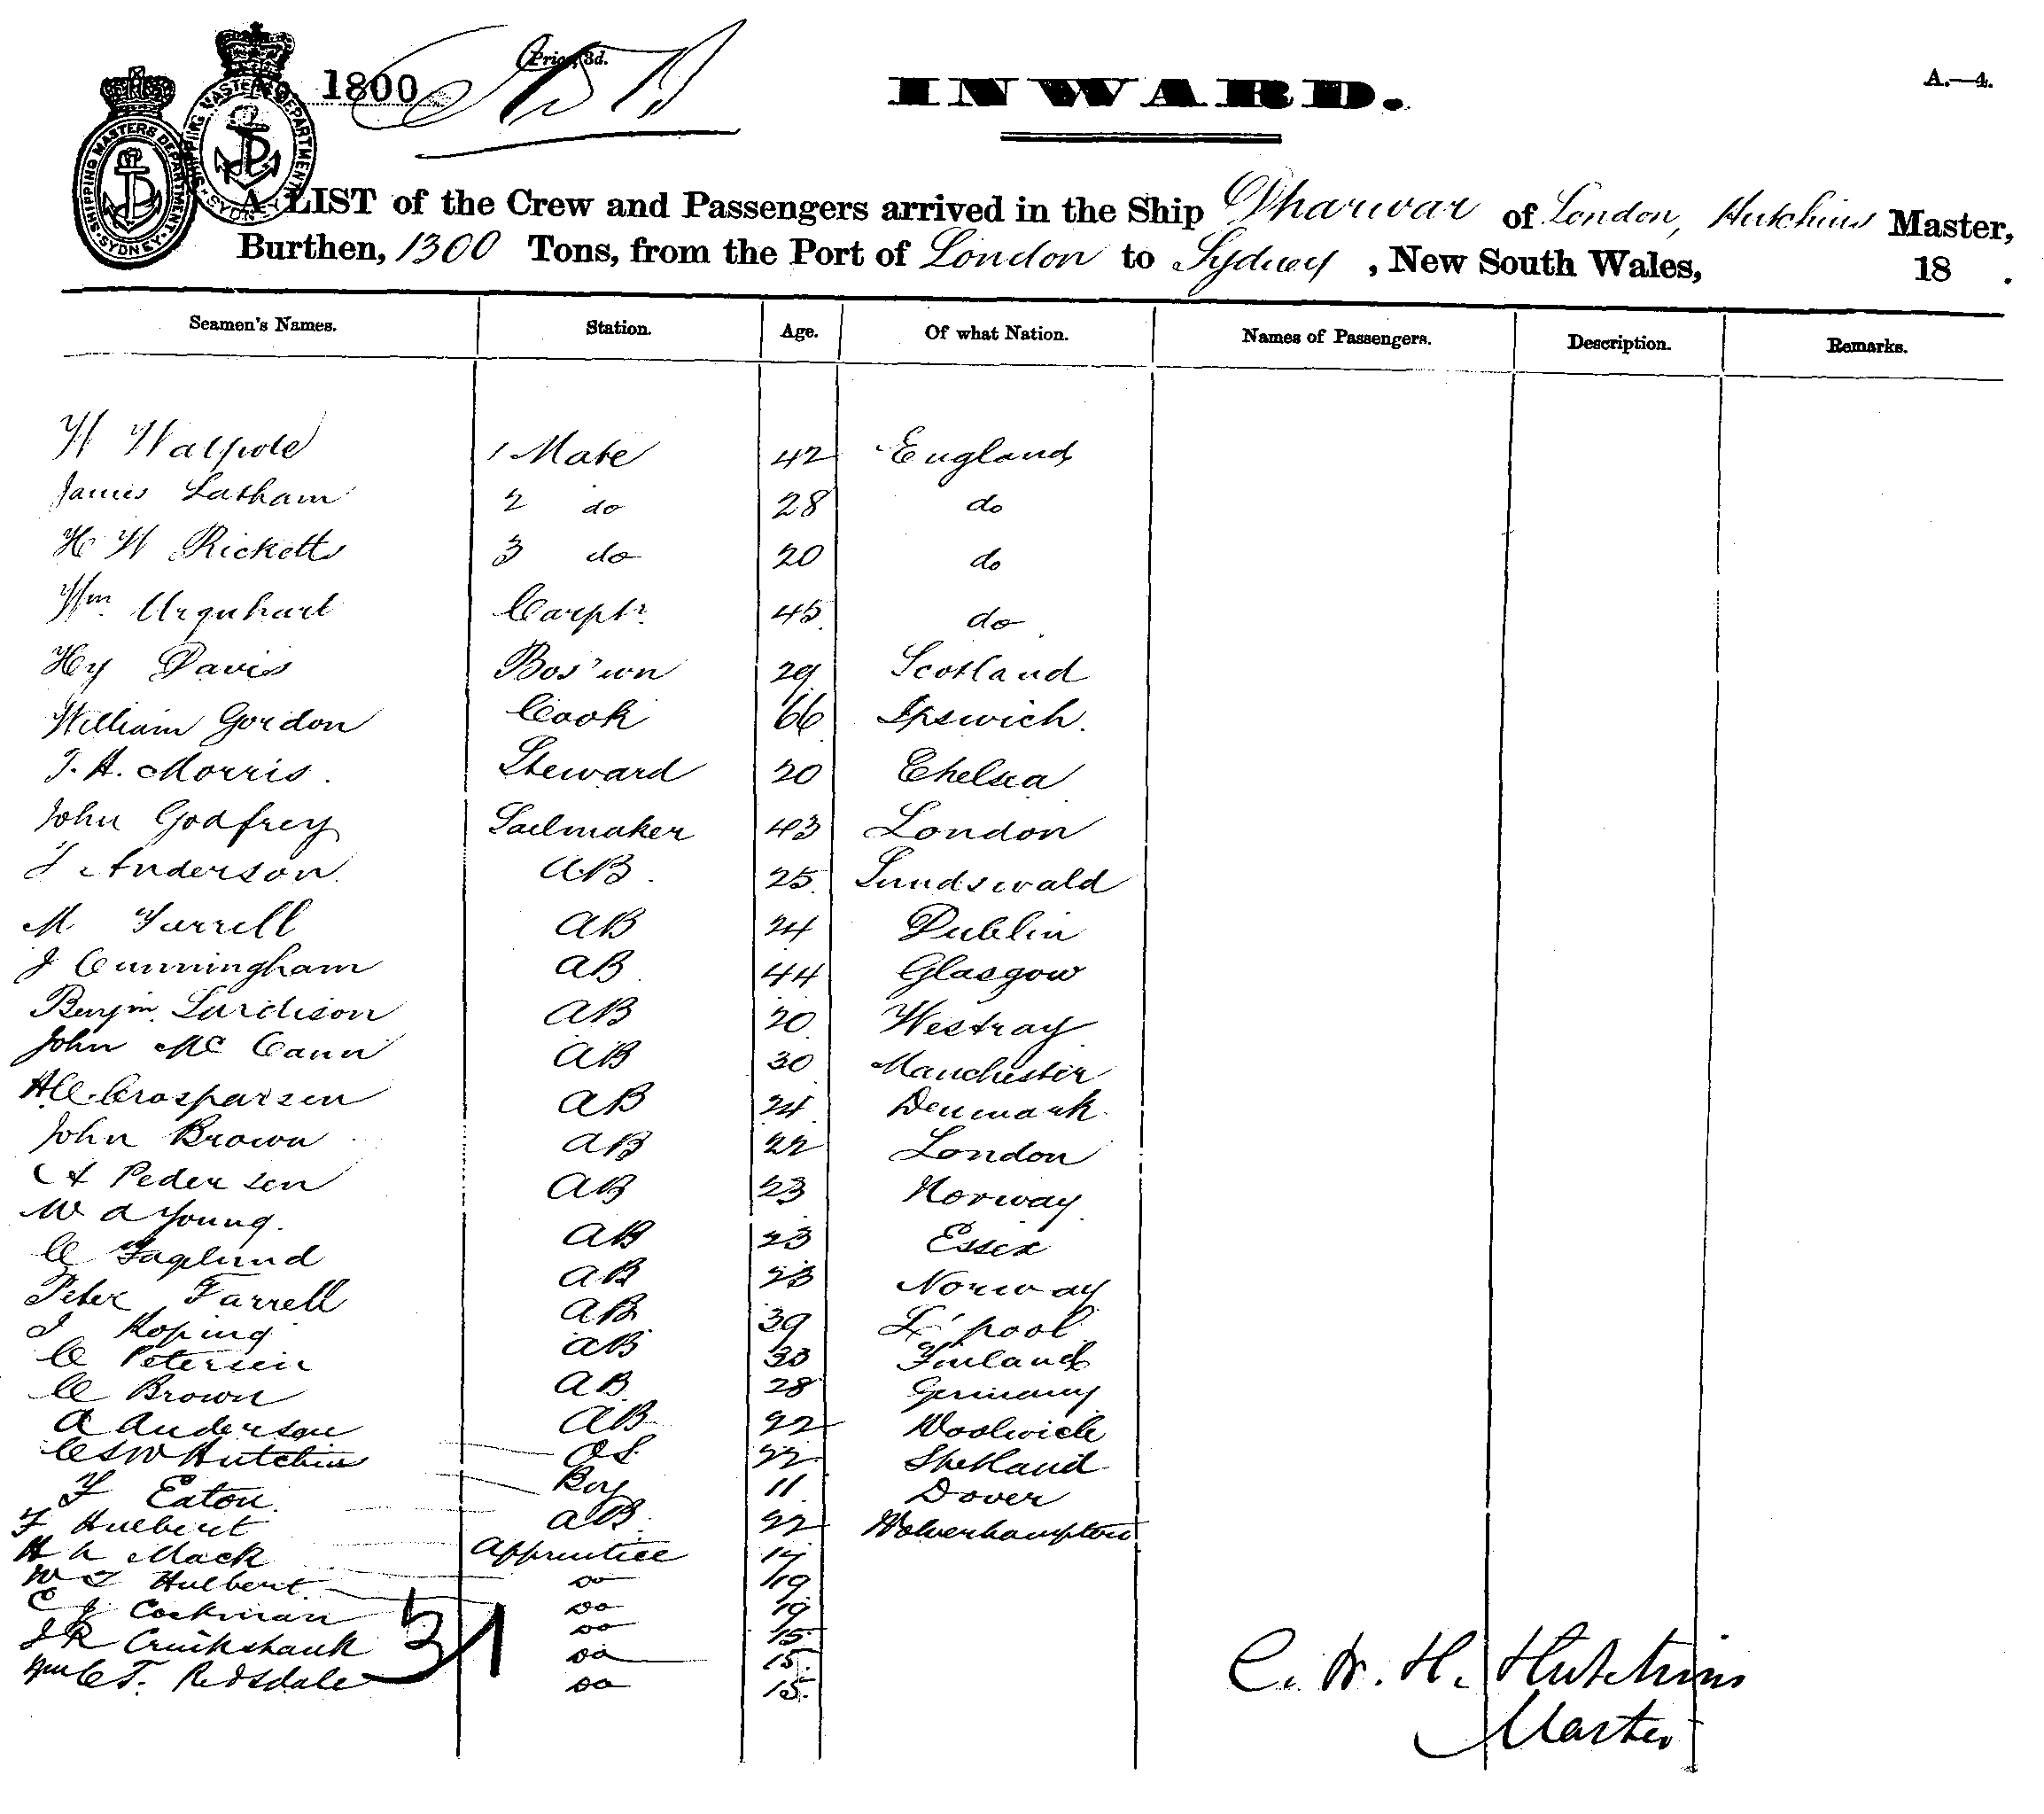 1800
Price, 3d.
INWARD.
A.—4.
SHIPPING MASTERS DEPARTMENT SYDNEY
SHIPPING MASTERS DEPARTMENT SYDNEY
A LIST of the Crew and Passengers arrived in the Ship Dharwar of London, Hutchins Master,
Burthen, 1300 Tons, from the Port of London to Sydney, New South Wales, 18 .
Seamen's Names. Station. Age. Of what Nation. Names of Passengers. Description. Remarks.
W Walpole 1 Mate 42 England
James Latham 2 do 28 do
H W Rickett 3 do 20 do
Wm Urquhart Carptr 45 do
Hy Davis Bos'wn 29 Scotland
William Gordon Cook 66 Ipswich.
T. H. Morris. Steward 20 Chelsea
John Godfrey Sailmaker 43 London
Anderson AB. 25. Sundswald
M Farrell AB 24 Dublin
J Cunningham AB. 44 Glasgow
Benjm. AB 20 Westray
John McCann AB 30 Manchester
AB 24 Denmark.
John Brown AB 22 London
Pedersen AB 23 Norway
W A Young. AB 23 Essex
C Faglund AB 23 Norway
Peter Farrell AB 39 L'pool
Koping AB 33 Finland
C Petersen AB 28 Germany
C Brown AB 22 Woolwich
A Anderson OS 22 Shetland
C S W Hutchins Boy 11 Dover
F Eaton. AB 22 Wolverhampton
F Hulbert Apprentice 17
H Mack do 19
W Hulbert do 19
C J Cockman do 15
J R Cruikshank do 15
Wm C T. Redsdale do 15
31
C. W. H. Hutchins
Master